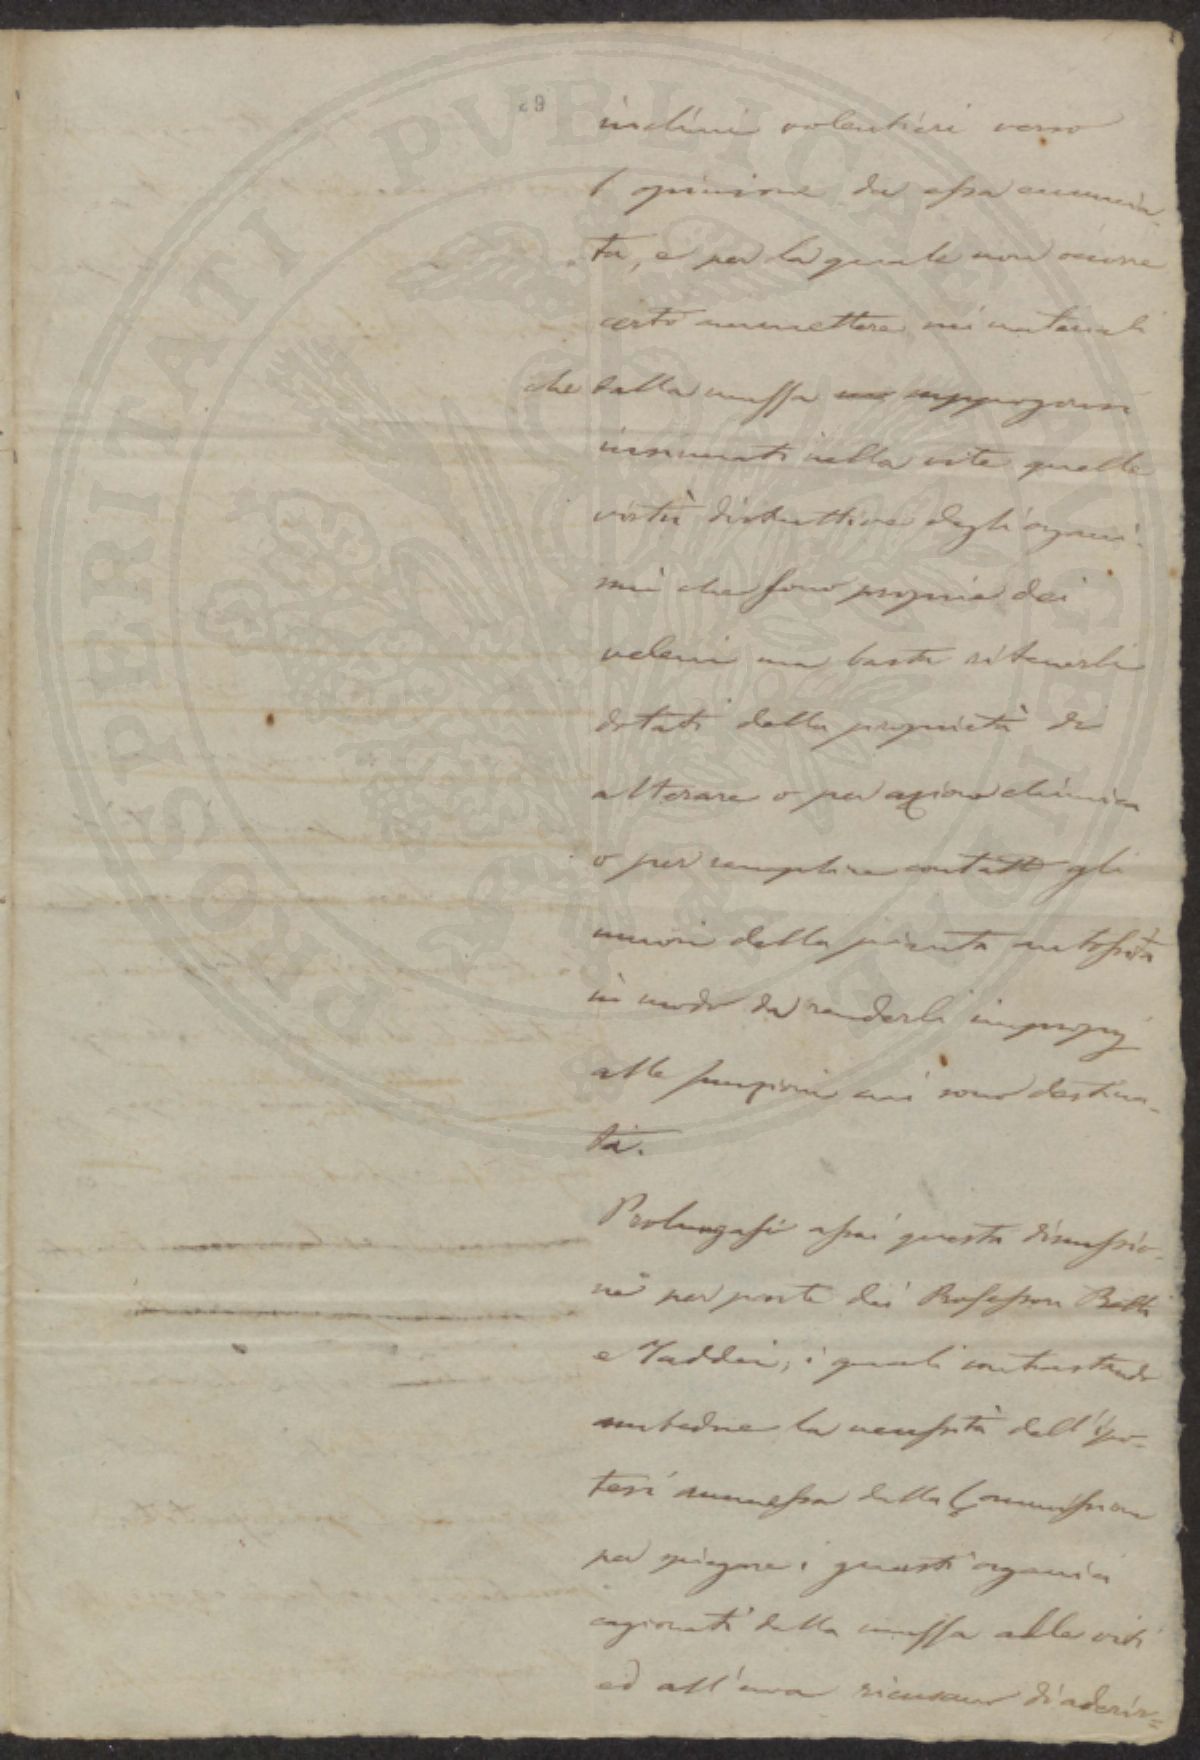 29
inclini volentieri verso
l'opinione da essa enuncia-
ta, e per la quale non occorre
certo ammettere nei materiali
che dalla muffa
insinuati nella vite quelle
virtù distruttive degli organi-
smi che sono proprie dei
veleni ma basta ritenerli
dotati della proprietà di
alterare o per azione chimica
o per semplice contatto gli
umori della pianta
in modo da renderli improprj
alle funzioni cui sono destina-
ti.
Prolungasi assai questa discussio-
ne per parte dei Professori Betti
e Taddei, i quali contrastando
ambedue la necessità dell'ipo-
tesi ammessa dalla Commissione
per spiegare i guasti organici
cagionati dalla muffa alle viti
ed all'uva ricusano di aderir=
PROSPERITATI PVBLICAE AVGENDAE